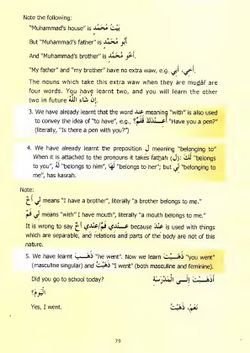 Note the following:
"Muhammad's house" is بَيْتُ مُحَمَّدٍ
But "Muhammad's father" is أَبُو مُحَمَّدٍ
And "Muhammad's brother" is أَخُو مُحَمَّدٍ.
"My father" and "my brother" have no extra waw, e.g. أَبِي، أَخِي.
The nouns which take this extra waw when they are muḍāf are
four words. You have learnt two, and you will learn the other
two in future إِنْ شَاءَ اللَّهُ
3. We have already learnt that the word عِنْدَ meaning "with" is also used
to convey the idea of "to have", e.g., أَعِنْدَكَ قَلَمٌ؟ "Have you a pen?"
(literally, "Is there a pen with you?")
4. We have already learnt the preposition لِ meaning "belonging to"
When it is attached to the pronouns it takes fatḥah (لَ): لَكَ "belongs
to you", لَهُ "belongs to him", لَهَا "belongs to her"; but لِي "belonging to
me", has kasrah.
Note:
لِي أَخٌ means "I have a brother", literally "a brother belongs to me."
لِي فَمٌ means "with" I have mouth", literally "a mouth belongs to me."
It is wrong to say عِنْدِي فَمٌ/عِنْدِي أَخٌ because عِنْدَ is used with things
which are separable, and relations and parts of the body are not of this
nature.
5. We have learnt ذَهَبَ "he went". Now we learn ذَهَبْتَ "you went"
(masculine singular) and ذَهَبْتُ "I went" (both masculine and feminine).
Did you go to school today? أَذَهَبْتَ إِلَى الْمَدْرَسَةِ
الْيَوْمَ؟
Yes, I went. نَعَمْ، ذَهَبْتُ
79